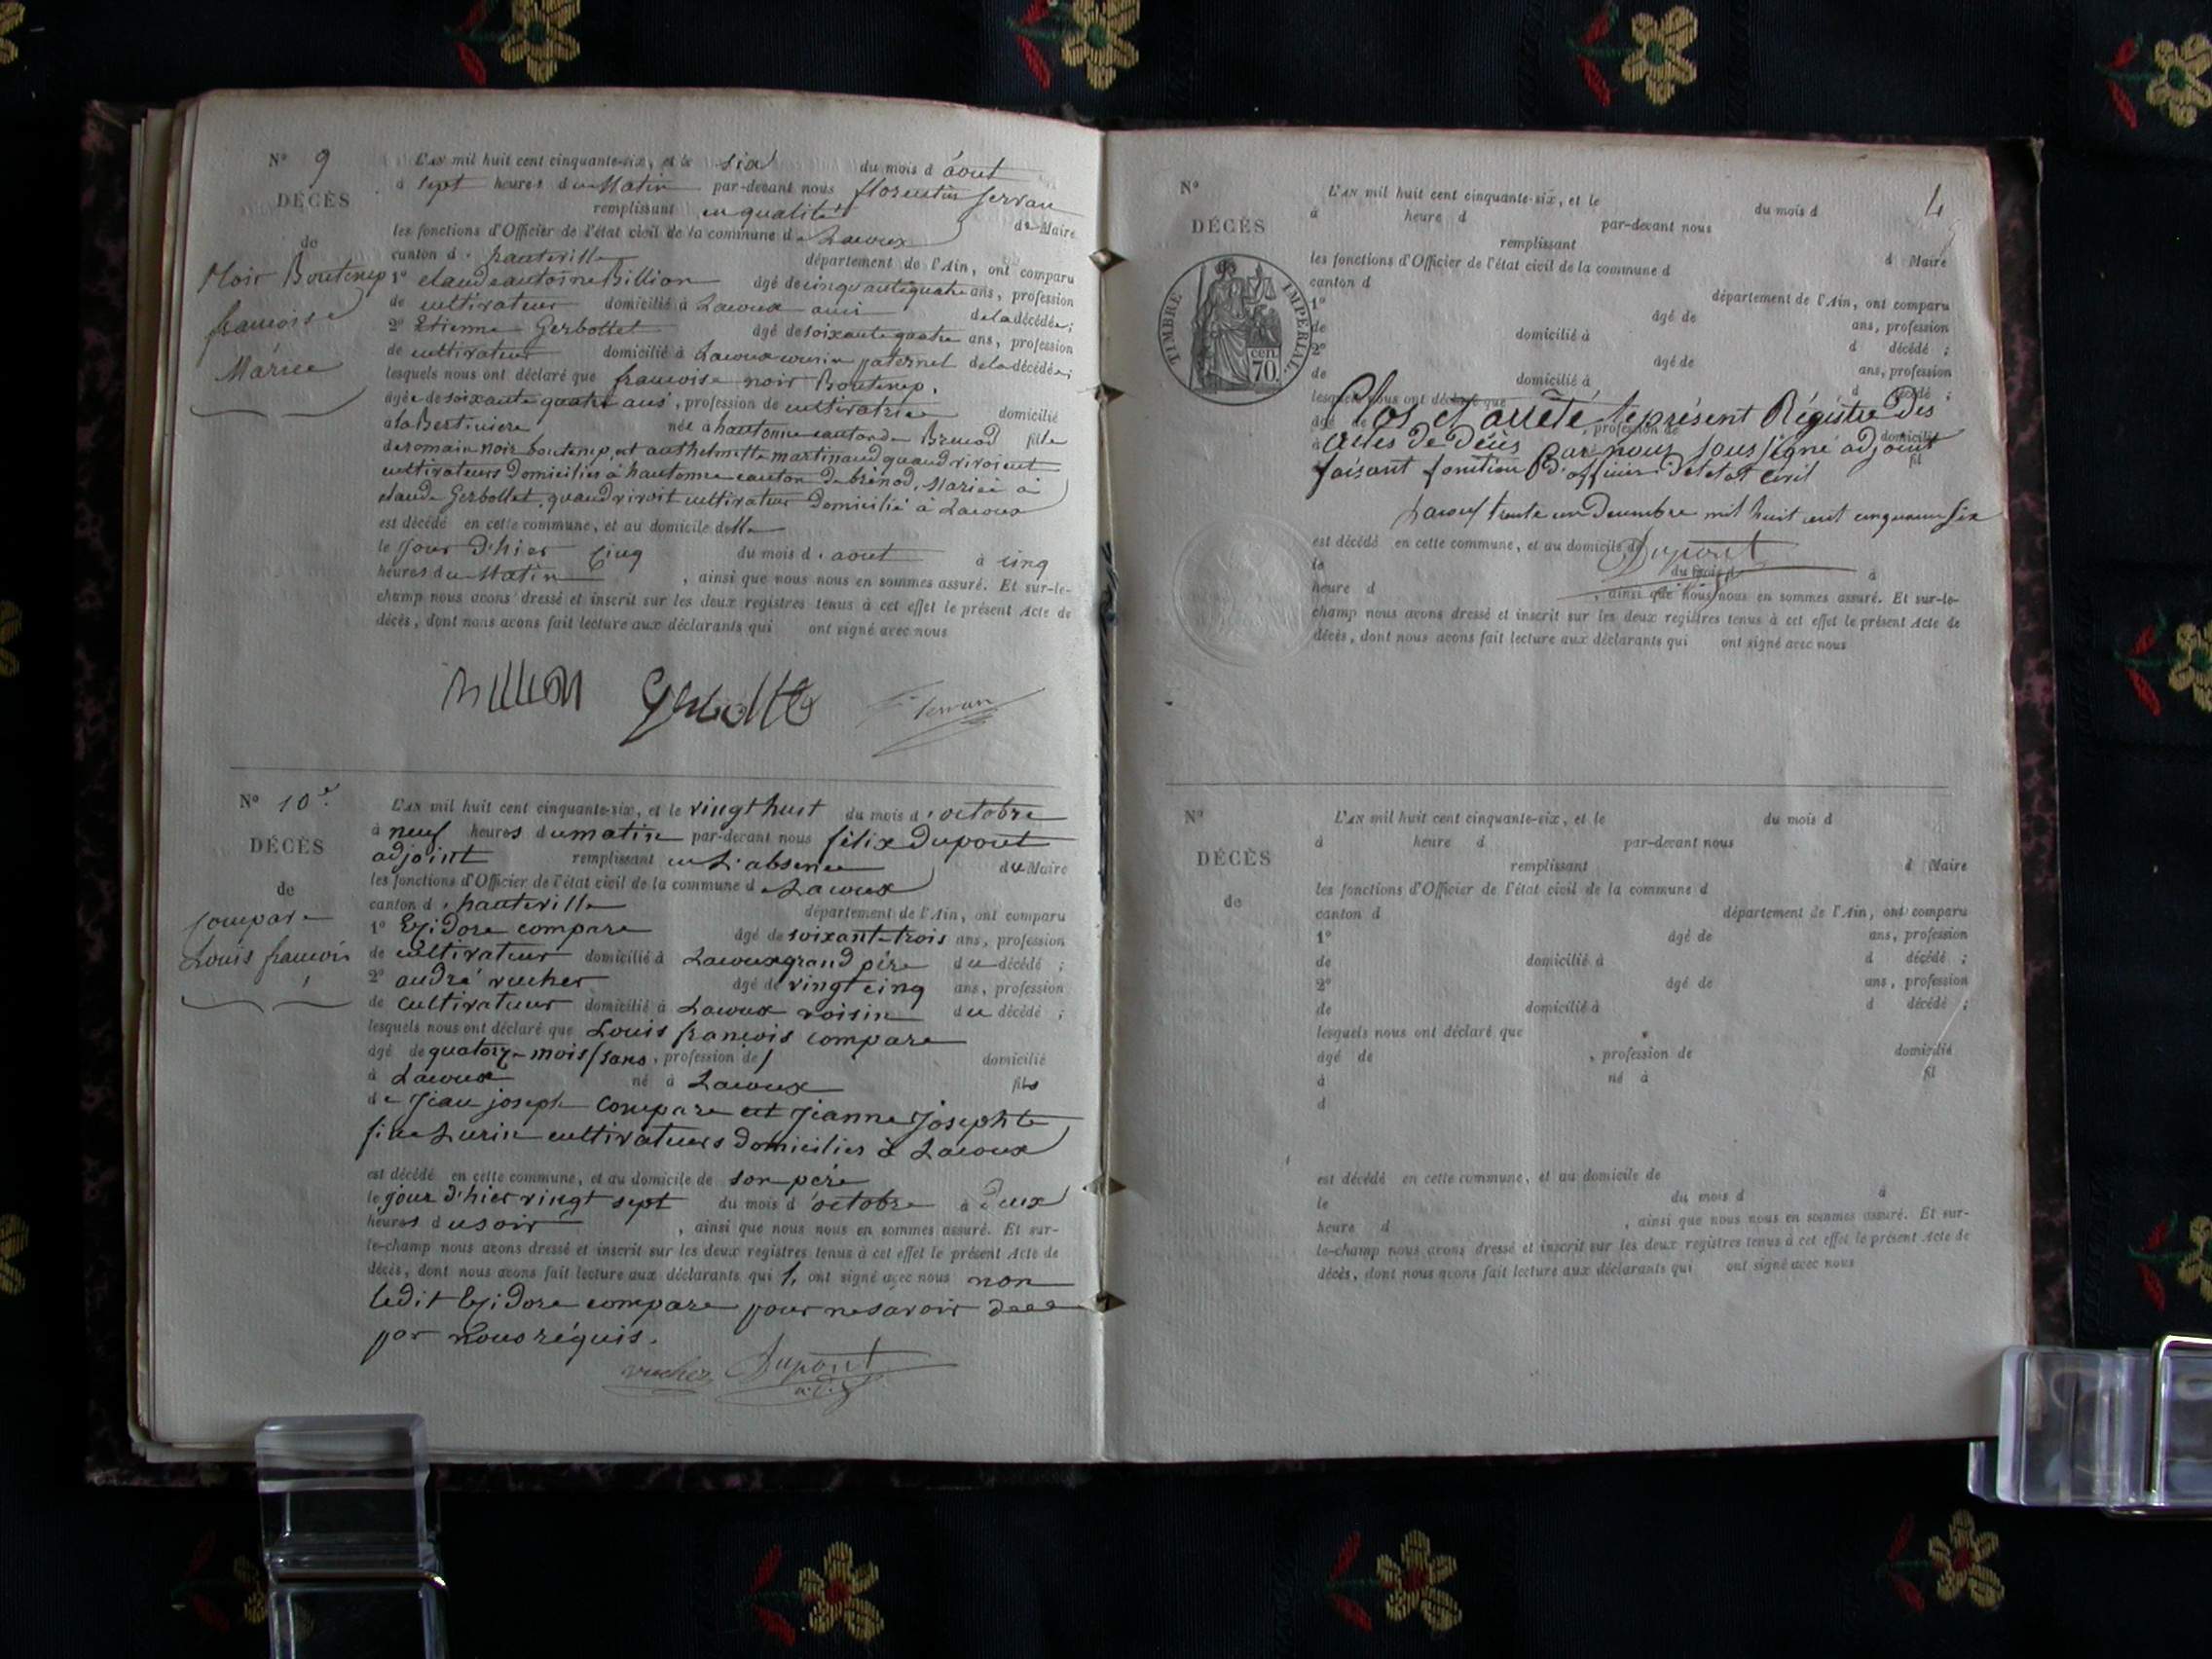 N° 9
DÉCÈS
de
Noir Boutenep
françoise
Mariée
L'AN mil huit cent cinquante-six, et le six du mois d'août
à sept heures du Matin par-devant nous florentin servan
remplissant en qualité de Maire
les fonctions d'Officier de l'état civil de la commune de Lacoux
canton d. hauteville département de l'Ain, ont comparu
1° claude antoine Billion âgé de cinquante quatre ans, profession
de cultivateur domicilié à Lacoux ami de la décédée;
2° Etienne Gerbollet âgé de soixante quatre ans, profession
de cultivateur domicilié à Lacoux cousin paternel de la décédée;
lesquels nous ont déclaré que françoise noir Boutenep,
âgée de soixante quatre ans, profession de cultivatrice domicilié
à la Bertiniere née à hautonne canton de Brenod fille
de romain noir boutenep, et anthelmette martinand quand vivoient
cultivateurs Domiciliés à hautonne canton de brénod, Mariée à
claude Gerbollet, quand vivoit cultivateur Domicilié à Lacoux
est décédé en cette commune, et au domicile delle
le jour d'hier cinq du mois d'. aout à cinq
heures du Matin, ainsi que nous nous en sommes assuré. Et sur-le-
champ nous avons dressé et inscrit sur les deux registres tenus à cet effet le présent Acte de
décès, dont nous avons fait lecture aux déclarants qui ont signé avec nous
Billion Gerbollet F. Servan
N° 10e.
DÉCÈS
de
compare
Louis françois
L'AN mil huit cent cinquante-six, et le vingt huit du mois d'octobre
à neuf heures du matin par-devant nous félix Dupont
adjoint remplissant en L'absence du Maire
les fonctions d'Officier de l'état civil de la commune de Lacoux
canton d. hauteville département de l'Ain, ont comparu
1° Ezidore compare âgé de soixante-trois ans, profession
de cultivateur domicilié à Lacoux grand père du décédé;
2° andré vucher âgé de vingt cinq ans, profession
de cultivateur domicilié à Lacoux voisin du décédé;
lesquels nous ont déclaré que Louis françois compare
âgé de quatorze mois / sans, profession de / domicilié
à Lacoux né à Lacoux fils
de Jean joseph compare et Jeanne Josephte
fine Lurin cultivateurs domiciliés à Lacoux
est décédé en cette commune, et au domicile de son père
le jour d'hier vingt sept du mois d'octobre à Deux
heures du soir, ainsi que nous nous en sommes assuré. Et sur-
le-champ nous avons dressé et inscrit sur les deux registres tenus à cet effet le présent Acte de
décès, dont nous avons fait lecture aux déclarants qui ont signé avec nous non
ledit Ezidore compare pour ne savoir de ce
par nous réquis.
vucher Dupont
4
N°
DÉCÈS
TIMBRE IMPERIAL
cen.
70.
L'AN mil huit cent cinquante-six, et le du mois d
à heure d par-devant nous
remplissant d Maire
les fonctions d'Officier de l'état civil de la commune d
canton d département de l'Ain, ont comparu
1° âgé de ans, profession
de domicilié à d décédé;
2° âgé de ans, profession
de domicilié à d décédé;
lesquels nous ont déclaré que
âgé de, profession de domicilié
fil
Clos et arrêté le présent Régistre Des
actes de Décès Par nous sous signé adjoint
faisant fonction D'officier De létat civil
Lacoux trente un Decembre mil huit cent cinquante six
Dupont
est décédé en cette commune, et au domicile de
le du mois d à
heure d, ainsi que nous nous en sommes assuré. Et sur-le-
champ nous avons dressé et inscrit sur les deux registres tenus à cet effet le présent Acte de
décès, dont nous avons fait lecture aux déclarants qui ont signé avec nous
N°
DÉCÈS
de
L'AN mil huit cent cinquante-six, et le du mois d
à heure d par-devant nous
remplissant d Maire
les fonctions d'Officier de l'état civil de la commune d
canton d département de l'Ain, ont comparu
1° âgé de ans, profession
de domicilié à d décédé;
2° âgé de ans, profession
de domicilié à d décédé;
lesquels nous ont déclaré que
âgé de, profession de domicilié
à né à fil
d
est décédé en cette commune, et au domicile de
le du mois d à
heure d, ainsi que nous nous en sommes assuré. Et sur-
le-champ nous avons dressé et inscrit sur les deux registres tenus à cet effet le présent Acte de
décès, dont nous avons fait lecture aux déclarants qui ont signé avec nous